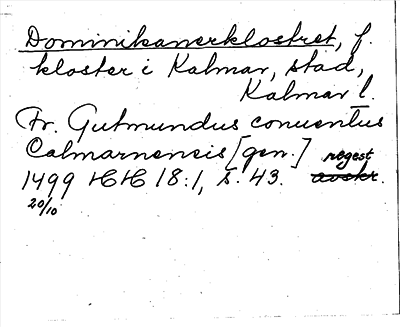 Dominikanerklostret, f.
kloster i Kalmar, stad,
Kalmar l.
Fr. Gutmundus conuentus
Calmarnensis [gen.]
1499 HH 18:1, s. 43. regest avskr.
20/10